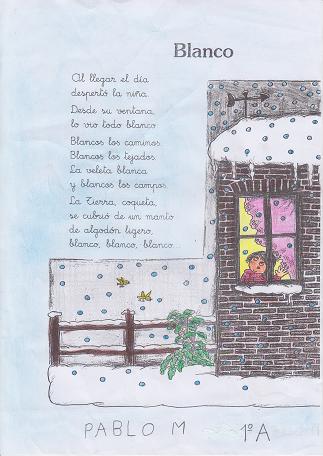 Blanco
Al llegar el día
despertó la niña.
Desde su ventana,
lo vio todo blanco.
Blancos los caminos.
Blancos los tejados.
La veleta blanca
y blancos los campos.
La Tierra, coqueta,
se cubrió de un manto
de algodón ligero,
blanco, blanco, blanco...
PABLO M 1º A